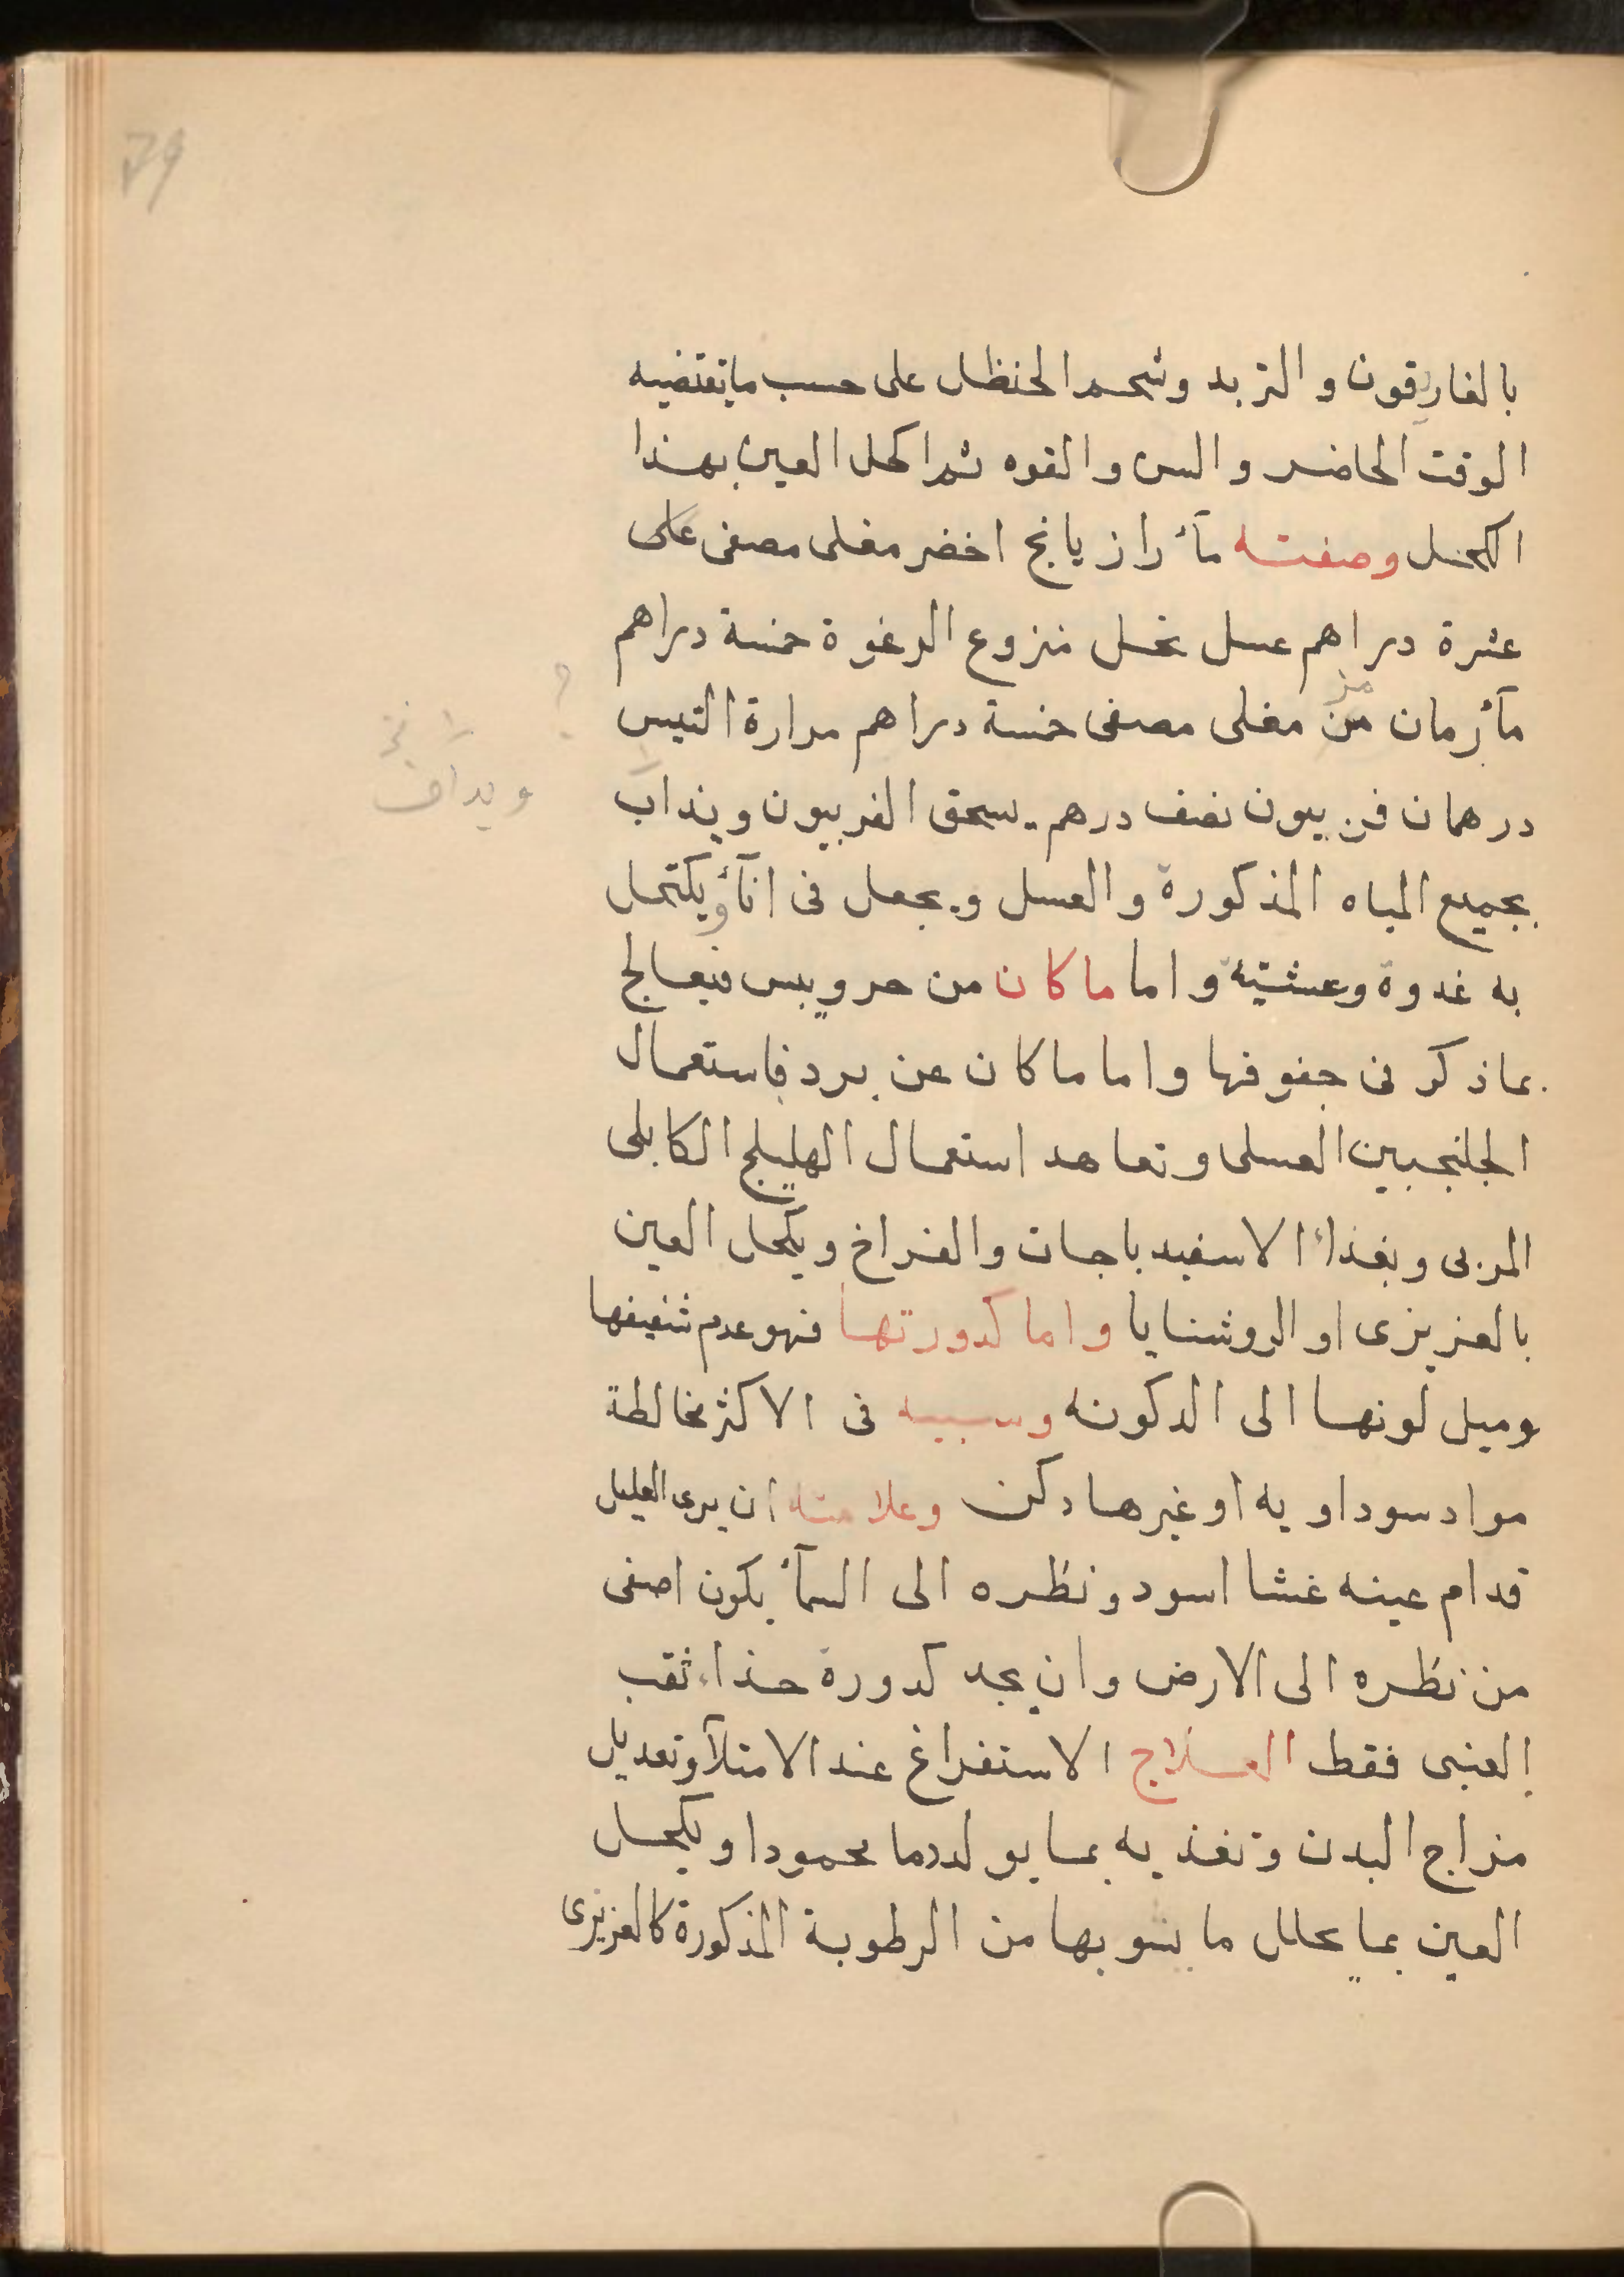 79
بالغاريقون والتربد وشحم الحنظل على حسب ما يقتضيه
الوقت الحاضر والسن والقوه ثم اكحل العين بهذا
الكحل وصفته مآء رازيانج اخضر مغلى مصفى على
عشرة دراهم عسل نحل منزوع الرغوة خمسة دراهم
مآء رمان مز مغلى مصفى خمسة دراهم مرارة التيس
درهمان فربيون نصف درهم يسحق الفربيون ويذاب
ويداف
بجميع المياه المذكورة والعسل ويجعل فى انآء ويكتحل
به غدوة وعشية واما ما كان من حر ويبس فيعالج
بما ذكر فى جفوفها واما ما كان عن برد فاستعمال
الجلنجبين العسلى وتعاهد استعمال الهليلج الكابلى
المربى وبغذاء الاسفيدباجات والفراخ ويكحل العين
بالعزيزى او الروشنايا واما كدورتها فهو عدم شفيفها
وميل لونها الى الدكونه وسببه فى الاكثر مخالطة
مواد سوداويه او غيرها دكن وعلامته ان يرى العليل
قدام عينه غشا اسود ونظره الى السمآء يكون اصفى
من نظره الى الارض وان يجد كدورة حذاء ثقب
العنبى فقط العلاج الاستفراغ عند الامتلآء وتعديل
مزاج البدن وتغذيه بما يولد دما محمودا ويكحل
العين بما يحلل ما يشوبها من الرطوبة المذكورة كالعزيزى